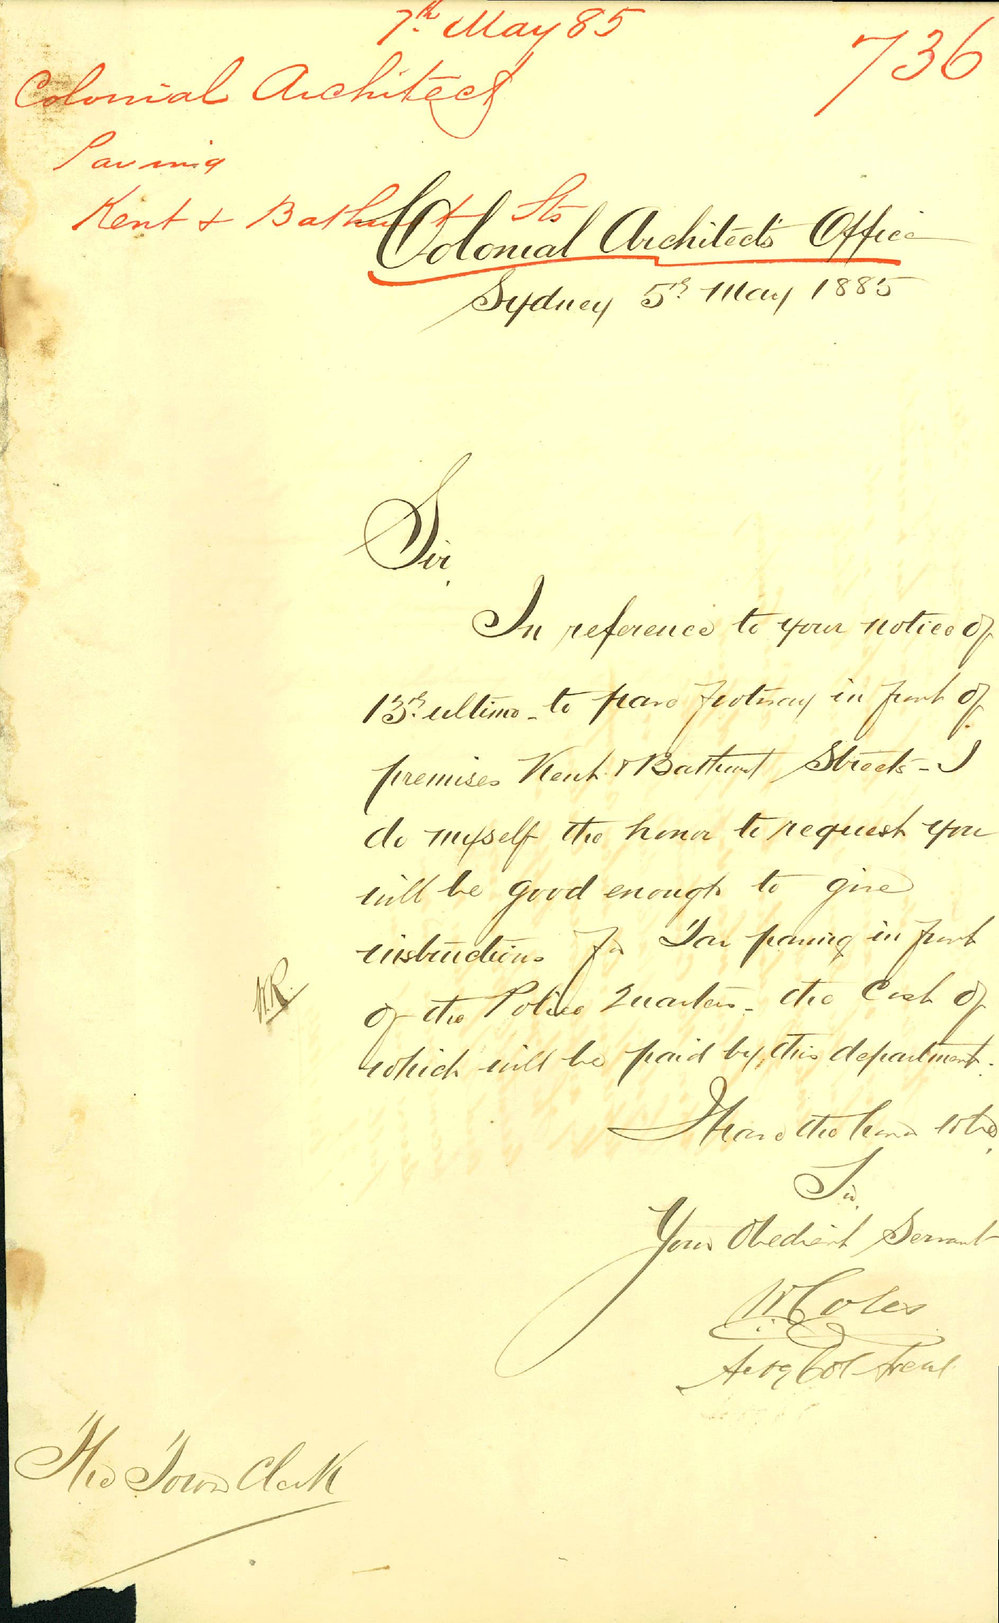 7th May 85
736
Colonial Architect
Paving
Kent & Bathurst Sts
Colonial Architect's Office
Sydney 5th May 1885
Sir,
In reference to your notice of
13th ultimo - to pave footway in front of
premises Kent & Bathurst Streets - I
do myself the honor to request you
will be good enough to give
instructions for Tar paving in front
of the Police Quarters - the Cost of
which will be paid by this department.
I have the honor to be
Sir,
Your Obedient Servant
W Coles
Actg Col Arcl
The Town Clerk